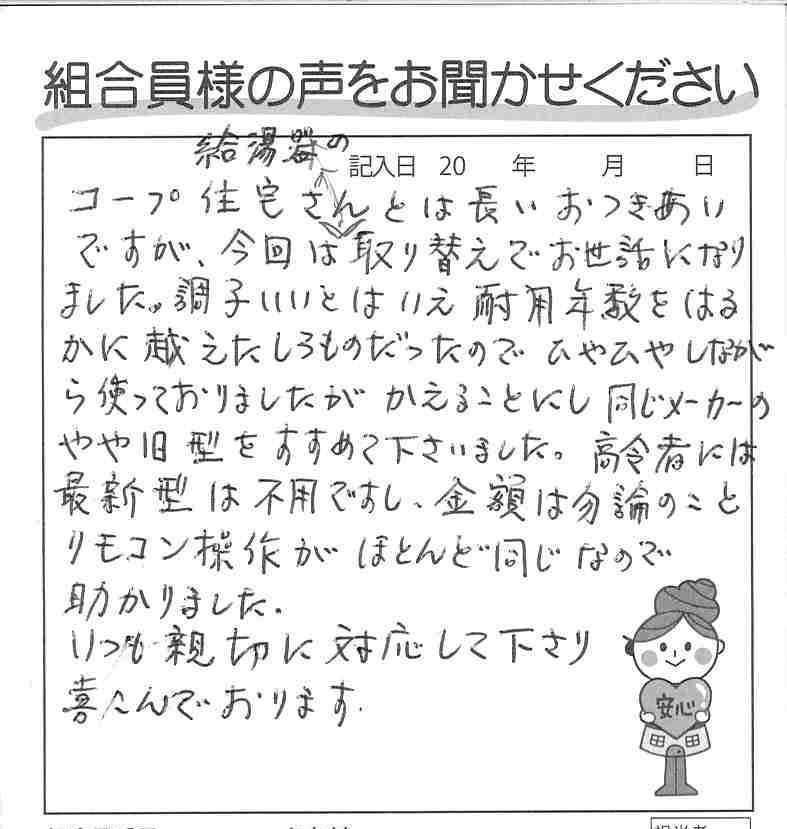 組合員様の声をお聞かせください
給湯器の
記入日 20 年 月 日
コープ住宅さんとは長いおつきあい
ですが、今回は取り替えでお世話になり
ました。調子いいとはいえ耐用年数をはる
かに越えたしろものだったのでひやひやしなが
ら使っておりましたがかえることにし同じメーカーの
やや旧型をすすめて下さいました。高令者には
最新型は不用ですし、金額は勿論のこと
リモコン操作がほとんど同じなので
助かりました。
いつも親切に対応して下さり、
喜こんでおります.
安心
担当者